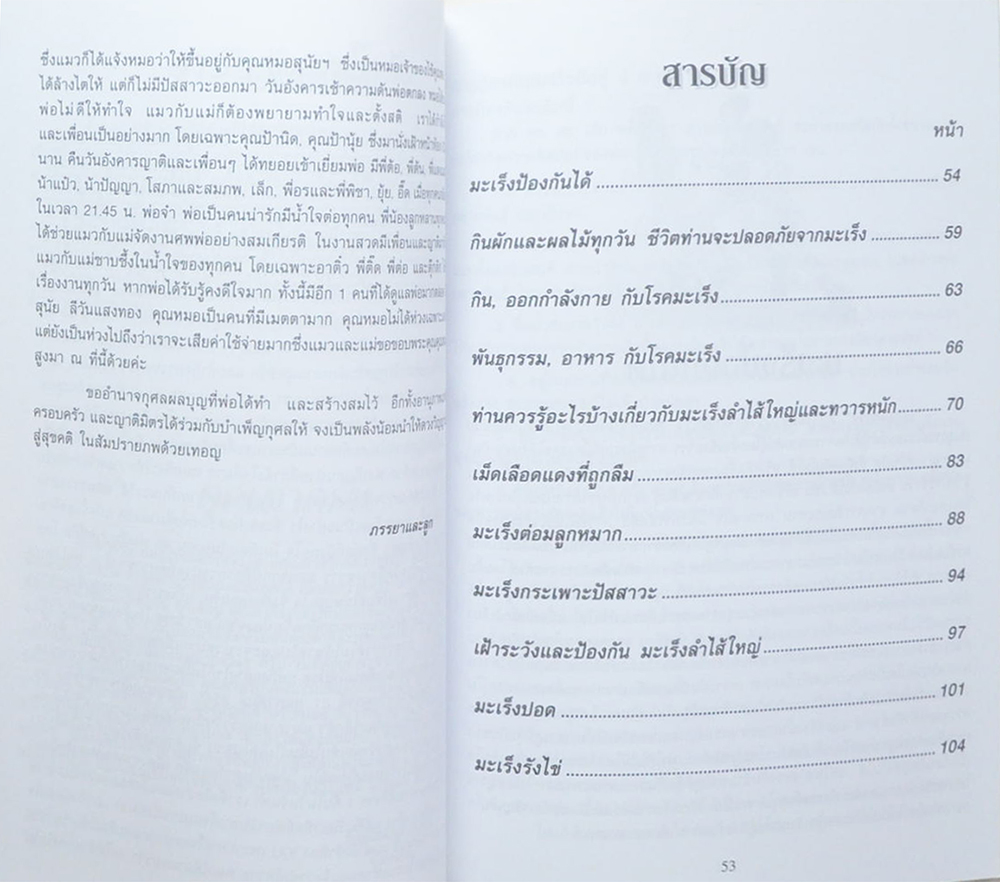 ซึ่งแมวก็ได้แจ้งหมอว่าให้ขึ้นอยู่กับคุณหมอสุนัยฯ ซึ่งเป็นหมอเจ้าของไข้
ได้ล้างไตให้ แต่ก็ไม่มีปัสสาวะออกมา วันอังคารเช้าความดันพ่อตกลง
พ่อไม่ดีให้ทำใจ แมวกับแม่ก็ต้องพยายามทำใจและตั้งสติ เราได้
และเพื่อนเป็นอย่างมาก โดยเฉพาะคุณป้านิด, คุณป้านุ้ย ซึ่งมานั่งเฝ้าหน้าห้อง
นาน คืนวันอังคารญาติและเพื่อนๆ ได้ทยอยเข้าเยี่ยมพ่อ มีพี่ต้อ, พี่ต้น,
น้าแป๋ว, น้าปัญญา, โสภาและสมภพ, เล็ก, พี่อรและพี่พิชา, ยุ้ย, อี๊ด เมื่อทุกคน
ในเวลา 21.45 น. พ่อจ๋า พ่อเป็นคนน่ารักมีน้ำใจต่อทุกคน พี่น้องลูกหลาน
ได้ช่วยแมวกับแม่จัดงานศพพ่ออย่างสมเกียรติ ในงานสวดมีเพื่อนและญาติ
แมวกับแม่ซาบซึ้งในน้ำใจของทุกคน โดยเฉพาะอาติ๋ว พี่ติ๊ด พี่ต่อ และ
เรื่องงานทุกวัน หากพ่อได้รับรู้คงดีใจมาก ทั้งนี้มีอีก 1 คนที่ได้ดูแลพ่อมาตลอด
สุนัย ลีวันแสงทอง คุณหมอเป็นคนที่มีเมตตามาก คุณหมอไม่ได้ห่วงเฉพาะ
แต่ยังเป็นห่วงไปถึงว่าเราจะเสียค่าใช้จ่ายมากซึ่งแมวและแม่ขอขอบพระคุณ
สูงมา ณ ที่นี้ด้วยค่ะ
ขออำนาจกุศลผลบุญที่พ่อได้ทำ และสร้างสมไว้ อีกทั้ง
ครอบครัว และญาติมิตรได้ร่วมกับบำเพ็ญกุศลให้ จงเป็นพลังน้อมนำให้ดวงวิญญาณ
สู่สุขคติ ในสัมปรายภพด้วยเทอญ
ภรรยาและลูก
สารบัญ
หน้า
มะเร็งป้องกันได้ ........ 54
กินผักและผลไม้ทุกวัน ชีวิตท่านจะปลอดภัยจากมะเร็ง ........ 59
กิน, ออกกำลังกาย กับโรคมะเร็ง ........ 63
พันธุกรรม, อาหาร กับโรคมะเร็ง ........ 66
ท่านควรรู้อะไรบ้างเกี่ยวกับมะเร็งลำไส้ใหญ่และทวารหนัก ........ 70
เม็ดเลือดแดงที่ถูกลืม ........ 83
มะเร็งต่อมลูกหมาก ........ 88
มะเร็งกระเพาะปัสสาวะ ........ 94
เฝ้าระวังและป้องกัน มะเร็งลำไส้ใหญ่ ........ 97
มะเร็งปอด ........ 101
มะเร็งรังไข่ ........ 104
53